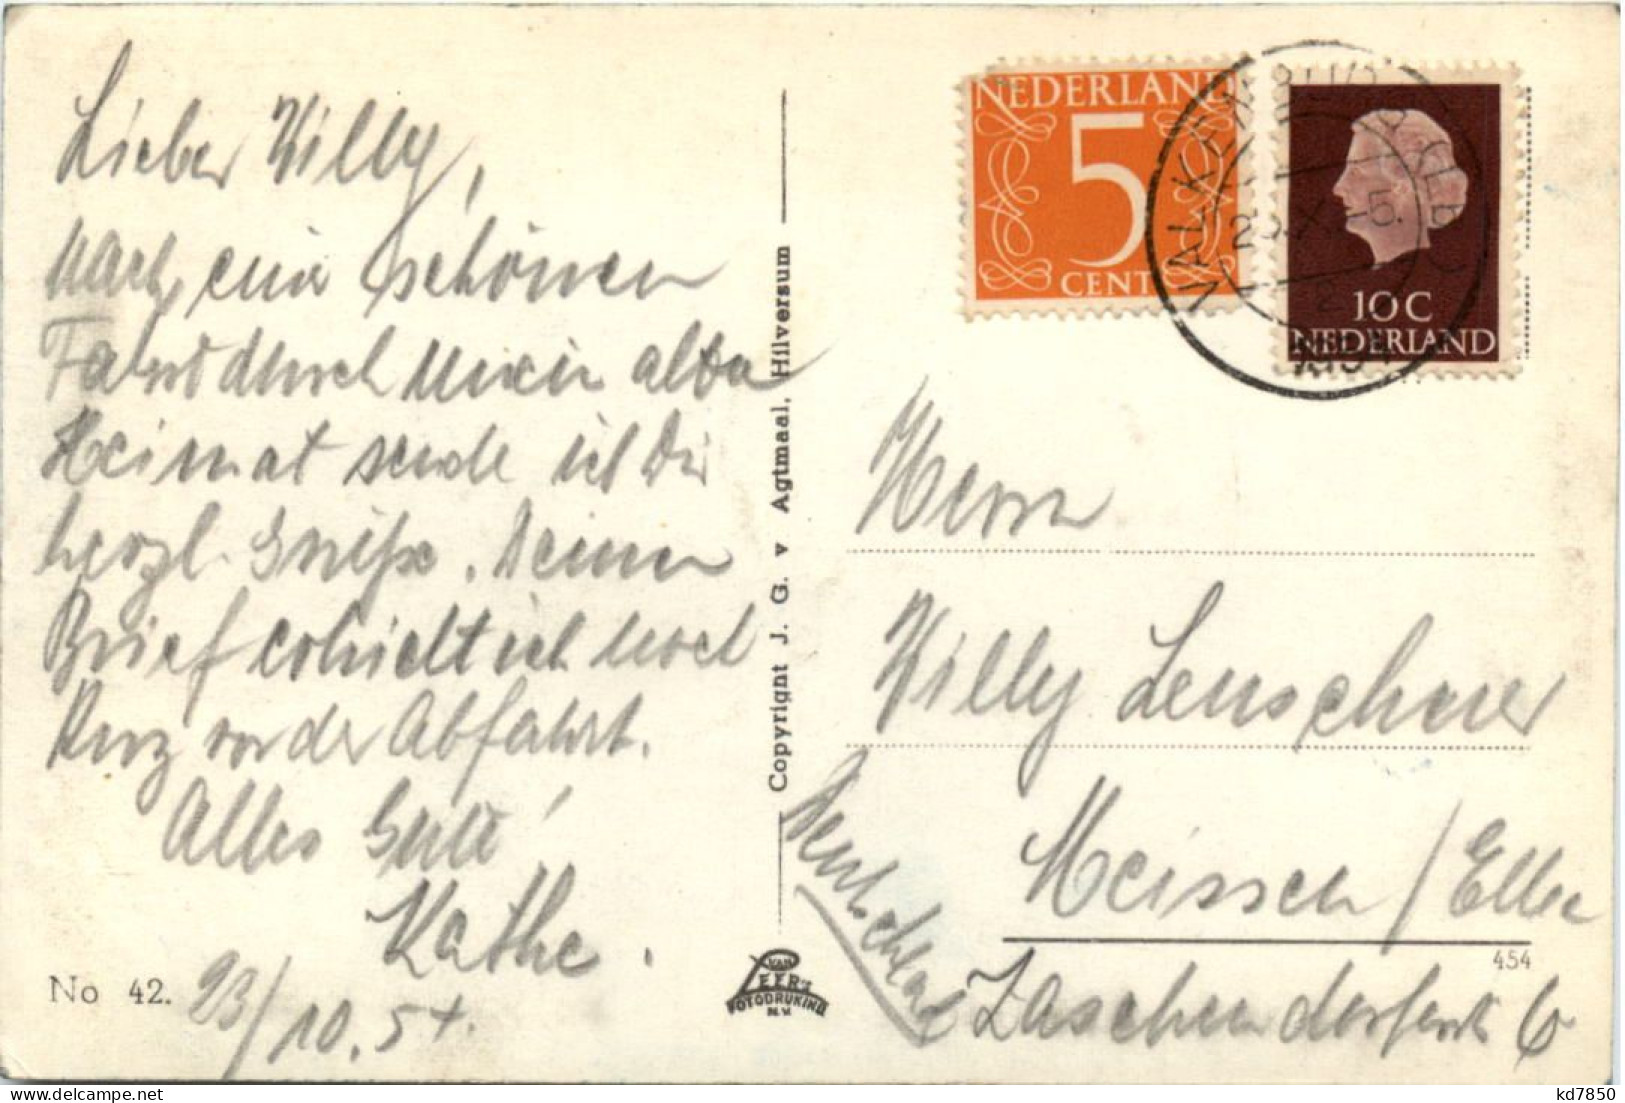 Lieber Willy,
Nach einer schönen
Fahrt durch meine alte
Heimat sende ich Dir
herzl. Grüße. Deinen
Brief erhielt ich noch
kurz vor der Abfahrt.
Alles Gute!
Käthe.
No 42. 23/10.54.
Copyright J. G. v Agtmaal, Hilversum
VAN
LEER'S
FOTODRUKIND
N.V.
NEDERLAND
5
CENT
10C
NEDERLAND
VALKENBURG
Herrn
Willy Leuschner
Meissen/Elbe
454
Zaschendorferstr 6
Deutschland
kd7850